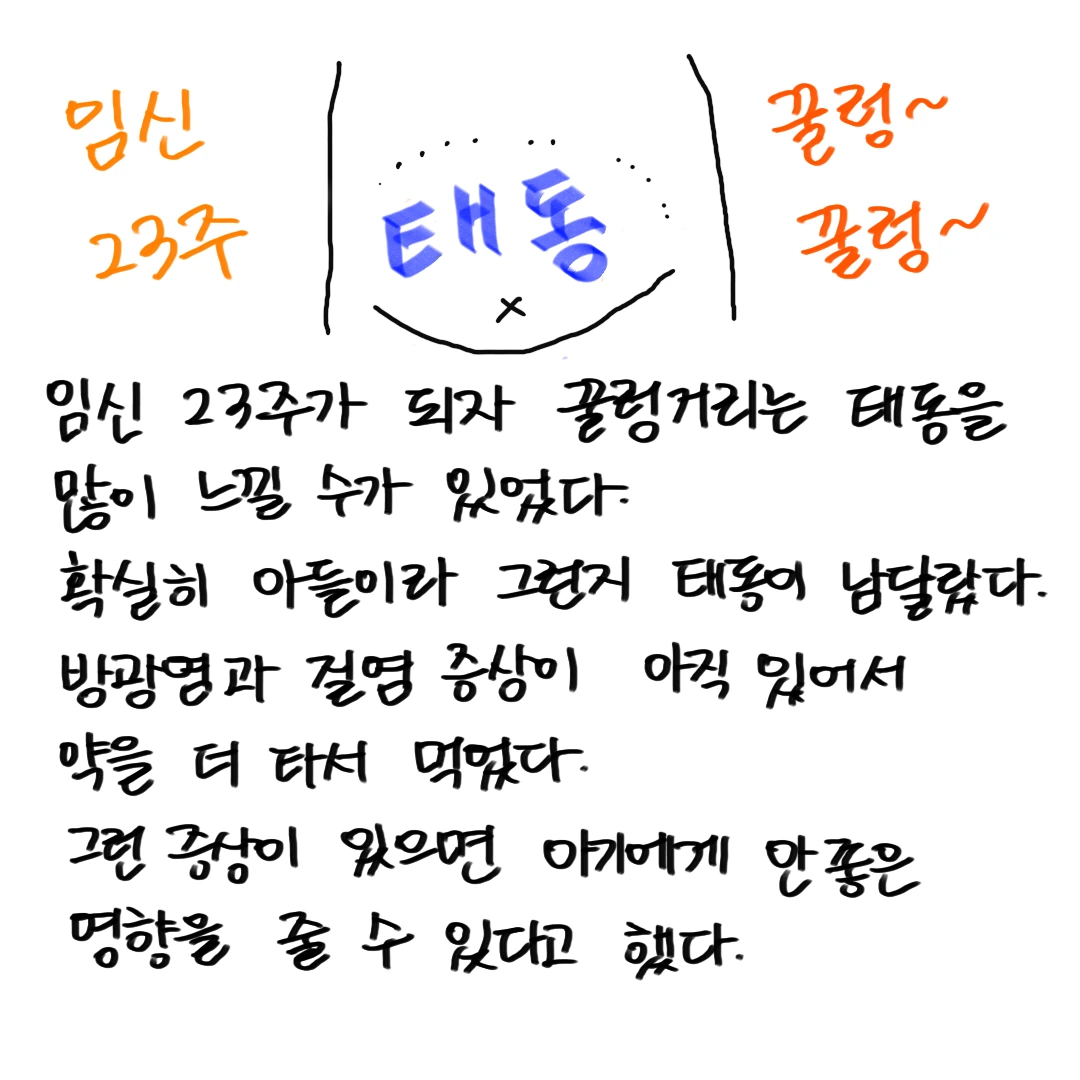 임신
23주
태동
꿀렁~
꿀렁~
임신 23주가 되자 꿀렁거리는 태동을
많이 느낄 수가 있었다.
확실히 아들이라 그런지 태동이 남달랐다.
방광염과 질염 증상이 아직 있어서
약을 더 타서 먹었다.
그런 증상이 있으면 아기에게 안좋은
영향을 줄 수 있다고 했다.